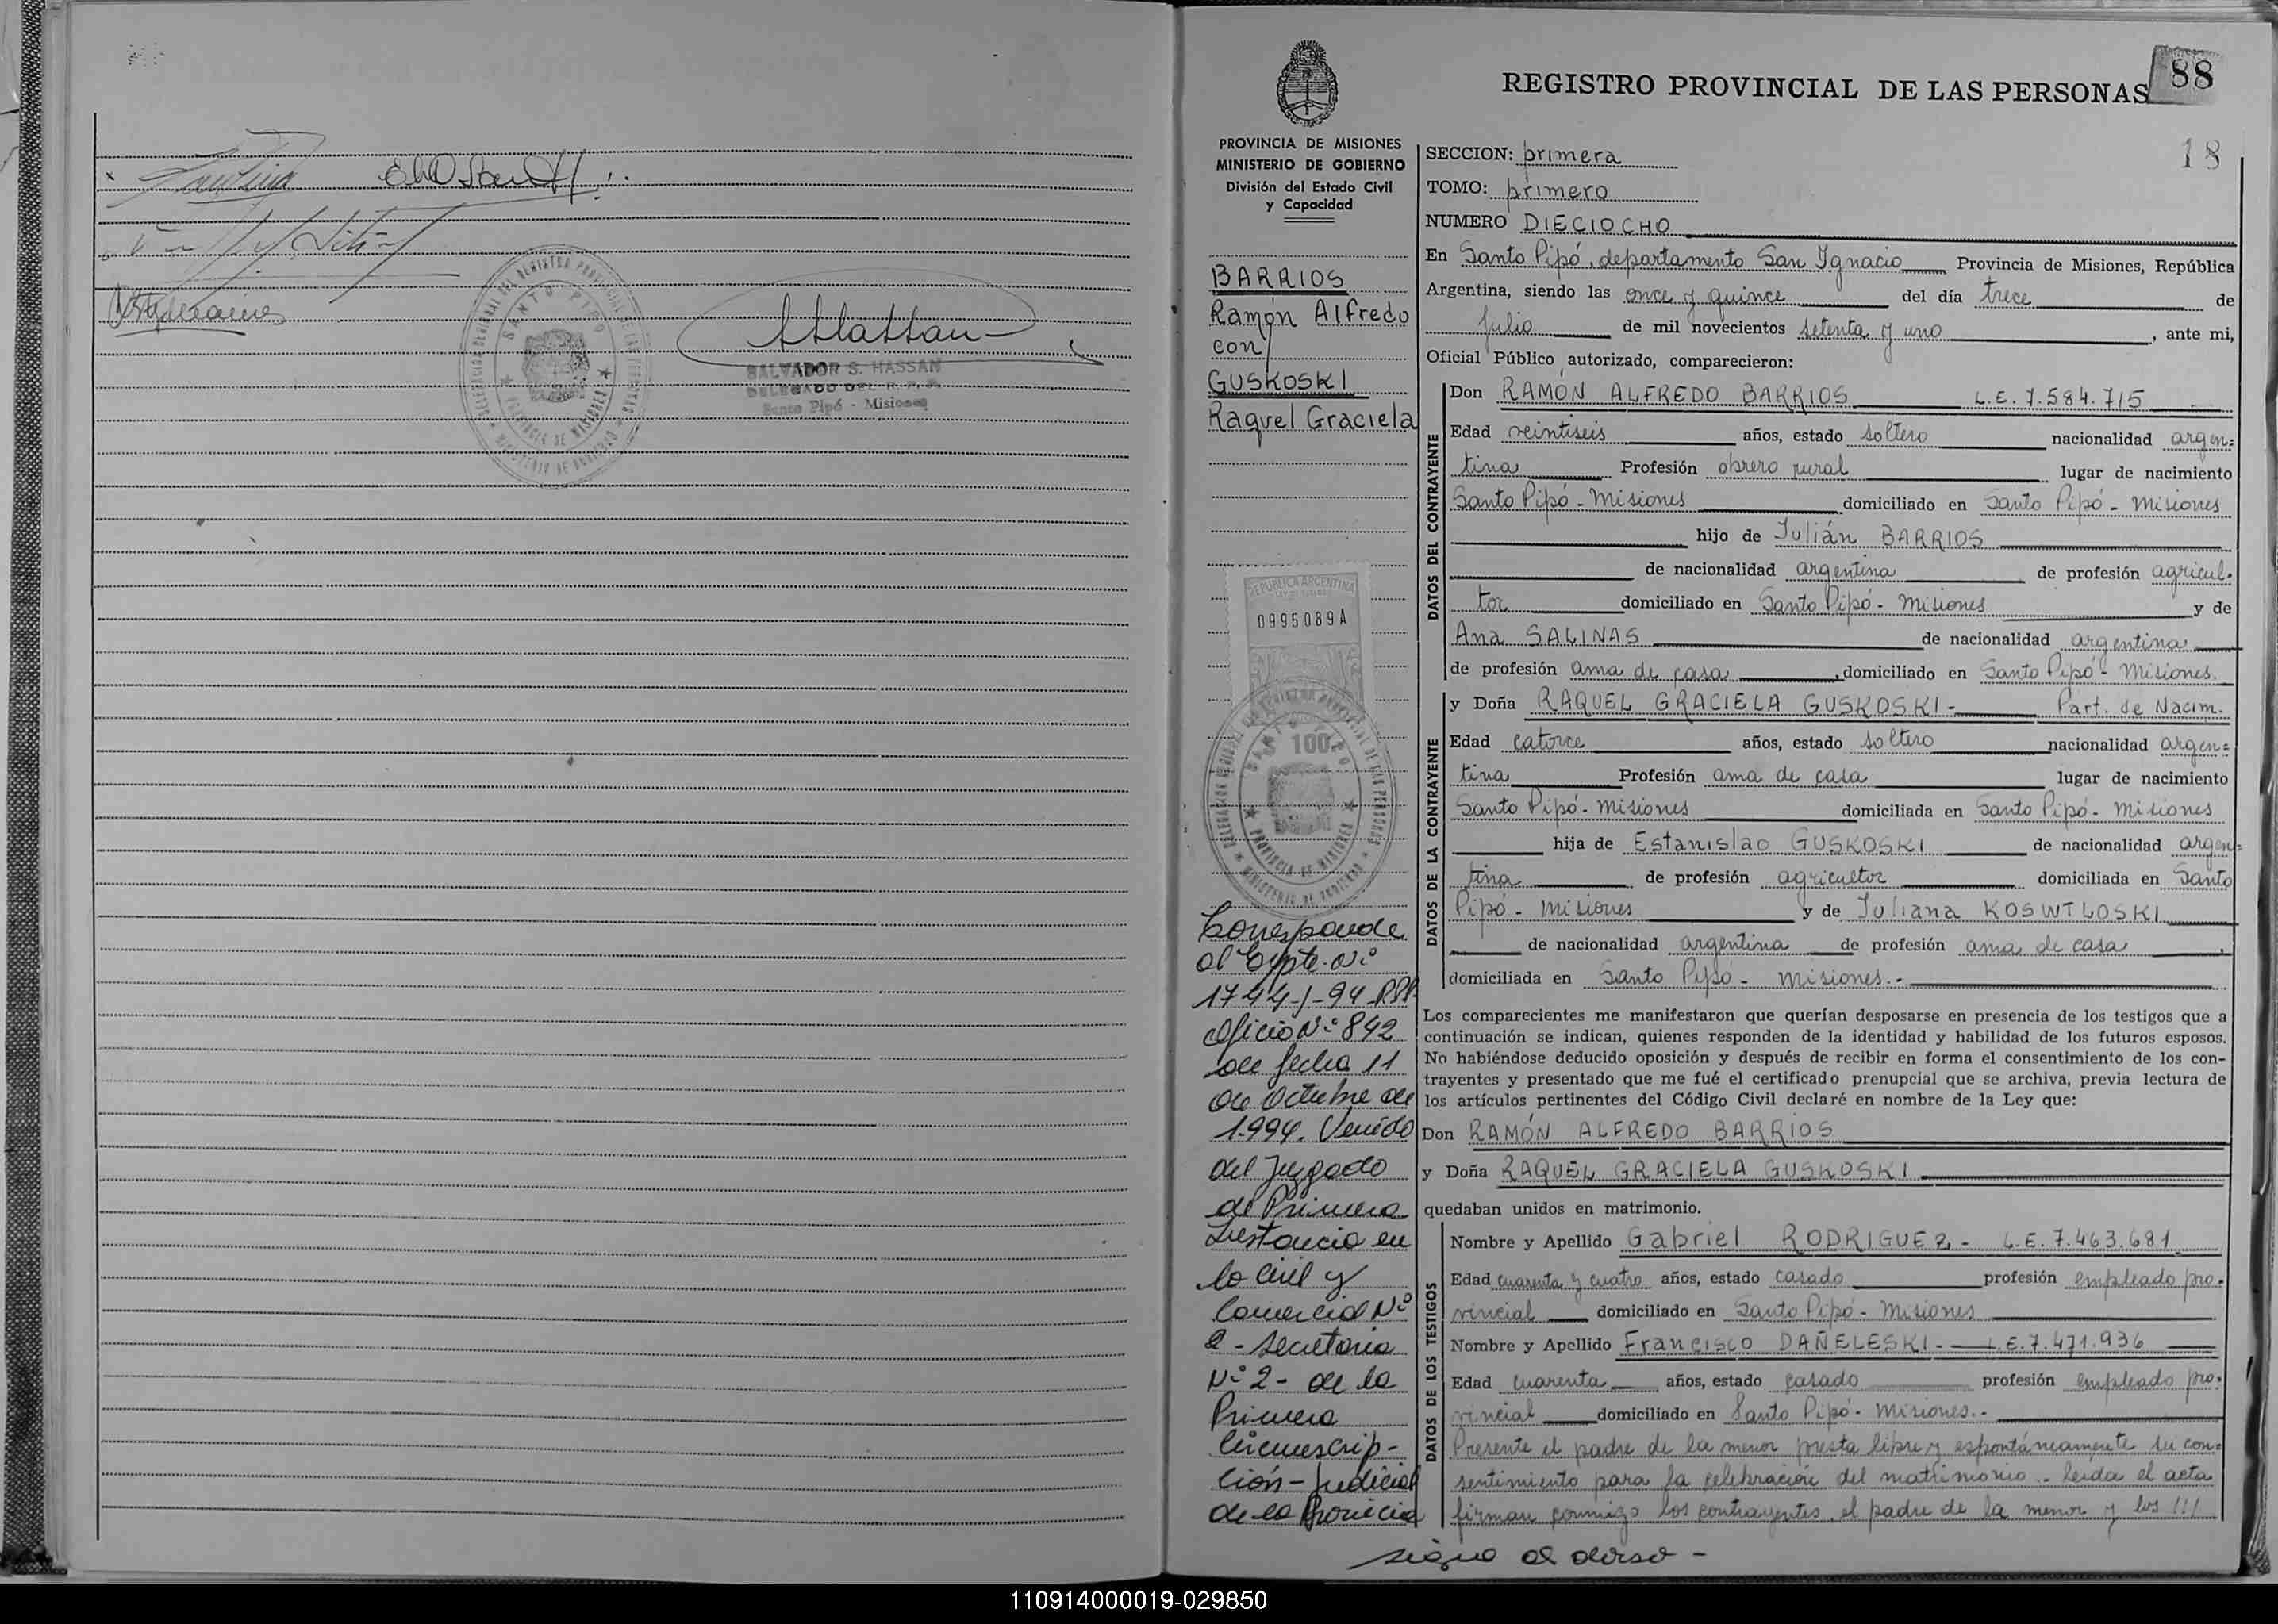 SANTO PIPÓ
PROVINCIA DE MISIONES
SALVADOR S. HASSAN
DELEGADO DEL R. P. P.
Santo Pipó - Misiones
REGISTRO PROVINCIAL DE LAS PERSONAS
88
18
PROVINCIA DE MISIONES
MINISTERIO DE GOBIERNO
División del Estado Civil
y Capacidad
BARRIOS
Ramón Alfredo
con
GUSKOSKI
Raquel Graciela
REPUBLICA ARGENTINA
0995089A
100
Corresponde
al Expte. Nº
1744-J-94-RPP
Oficio Nº 842
de fecha 11
de Octubre de
1.994. Venido
del Juzgado
de Primera
Instancia en
lo Civil y
Comercial Nº
2 - Secretaria
Nº 2 - de la
Primera
Circunscrip-
ción - Judicial
de la Provincia
SECCION: primera
TOMO: primero
NUMERO DIECIOCHO
En Santo Pipó, departamento San Ignacio Provincia de Misiones, República
Argentina, siendo las once y quince del día trece de
Julio de mil novecientos setenta y uno, ante mi,
Oficial Público autorizado, comparecieron:
DATOS DEL CONTRAYENTE
Don RAMÓN ALFREDO BARRIOS L.E. 7.584.715
Edad veintiseis años, estado soltero nacionalidad argen=
tina Profesión obrero rural lugar de nacimiento
Santo Pipó - Misiones domiciliado en Santo Pipó - Misiones
hijo de Julián BARRIOS
de nacionalidad argentina de profesión agricul-
tor domiciliado en Santo Pipó - Misiones y de
Ana SALINAS de nacionalidad argentina
de profesión ama de casa, domiciliado en Santo Pipó - Misiones.
DATOS DE LA CONTRAYENTE
y Doña RAQUEL GRACIELA GUSKOSKI - Part. de Nacim.
Edad catorce años, estado soltero nacionalidad argen=
tina Profesión ama de casa lugar de nacimiento
Santo Pipó - Misiones domiciliada en Santo Pipó - Misiones
hija de Estanislao GUSKOSKI de nacionalidad argen=
tina de profesión agricultor domiciliada en Santo
Pipó - Misiones y de Juliana KOSWTLOSKI
de nacionalidad argentina de profesión ama de casa,
domiciliada en Santo Pipó - Misiones.-
Los comparecientes me manifestaron que querían desposarse en presencia de los testigos que a
continuación se indican, quienes responden de la identidad y habilidad de los futuros esposos.
No habiéndose deducido oposición y después de recibir en forma el consentimiento de los con-
trayentes y presentado que me fué el certificado prenupcial que se archiva, previa lectura de
los artículos pertinentes del Código Civil declaré en nombre de la Ley que:
Don RAMÓN ALFREDO BARRIOS
y Doña RAQUEL GRACIELA GUSKOSKI
quedaban unidos en matrimonio.
DATOS DE LOS TESTIGOS
Nombre y Apellido Gabriel RODRIGUEZ - L.E. 7.463.681
Edad cuarenta y cuatro años, estado casado profesión empleado pro-
vincial domiciliado en Santo Pipó - Misiones
Nombre y Apellido Francisco DAÑELESKI - L.E. 7.471.936
Edad cuarenta años, estado casado profesión empleado pro-
vincial domiciliado en Santo Pipó - Misiones.-
Presente el padre de la menor presta libre y espontáneamente su con=
sentimiento para la celebración del matrimonio.- Leída el acta
firman conmigo los contrayentes, el padre de la menor y los ///
sigue al dorso -
110914000019-029850